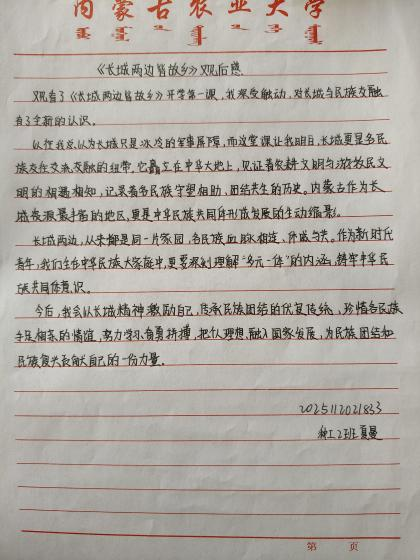 内蒙古农业大学
《长城两边皆故乡》观后感
观看了《长城两边皆故乡》开学第一课，我深受触动，对长城与民族交融
有了全新的认识。
以往我总认为长城只是冰冷的军事屏障，而这堂课让我明白，长城更是各民
族交往交流交融的纽带。它矗立在中华大地上，见证着农耕文明与游牧民文
明的相遇相知，记录着多民族守望相助、团结共生的历史。内蒙古作为长
城资源最丰富的地区，更是中华民族共同体形成发展的生动缩影。
长城两边，从来都是同一片家园，各民族血脉相连、休戚与共。作为新时代
青年，我们生在中华民族大家庭中，更要深刻理解“多元一体”的内涵，铸牢中华民
族共同体意识。
今后，我会以长城精神激励自己，传承民族团结的优良传统，珍惜各民族
手足相亲的情谊，努力学习、奋勇拼搏，把个人理想融入国家发展，为民族团结和
民族复兴贡献自己的一份力量。
2025112021833
种工2班 夏曼
第 页